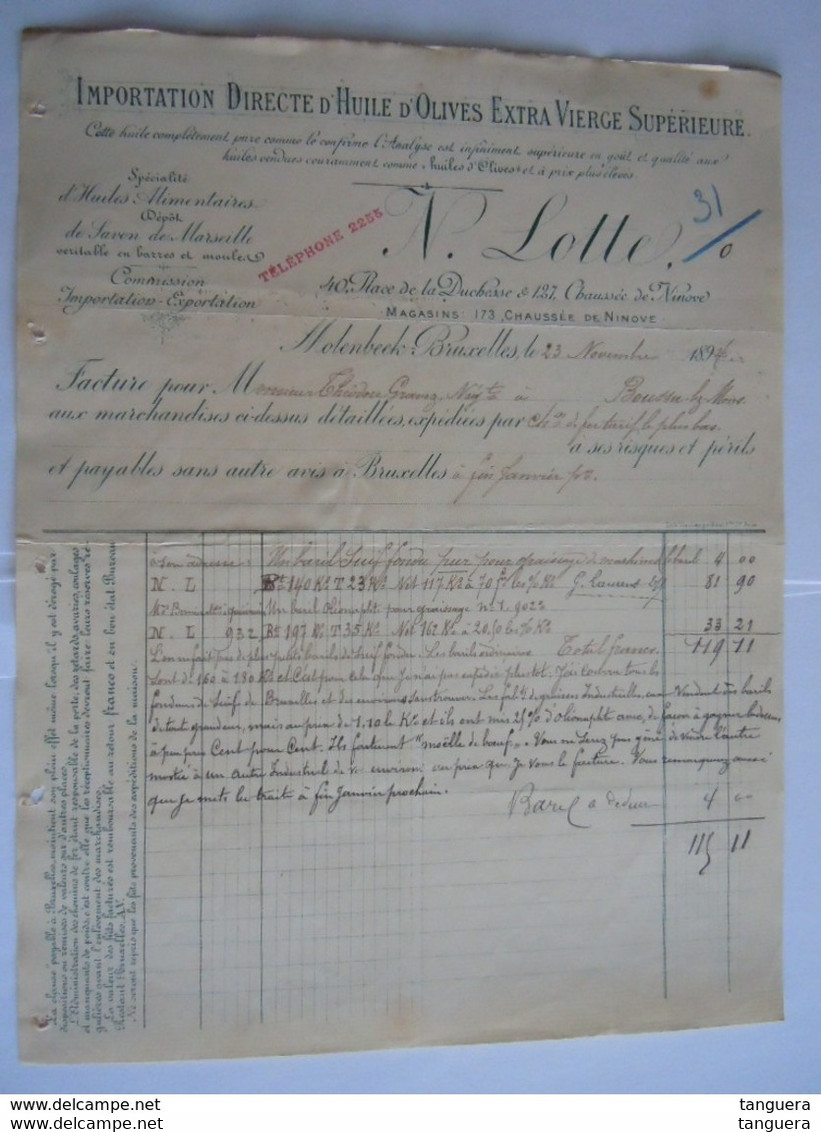 IMPORTATION DIRECTE D'HUILE D'OLIVES EXTRA VIERGE SUPÉRIEURE.
Cette huile complètement pure comme le confirme l'Analyse est infiniment supérieure en goût et qualité aux
huiles vendues couramment comme huiles d'Olives et à prix plus élevés.
Spécialité
d'Huiles Alimentaires
Dépôt
de Savon de Marseille
veritable en barres et moules
Commission
Importation-Exportation
TÉLÉPHONE 2255
31/0
N. Lotte.
40, Place de la Duchesse & 127, Chaussée de Ninove
MAGASINS: 173, CHAUSSÉE DE NINOVE
Molenbeek-Bruxelles, le 23 Novembre 1894
Facture pour Monsieur Théodore Gravez Négt à Boussu lez Mons
aux marchandises ci-dessus détaillées, expédiées par ch. de fer tarif le plus bas
à ses risques et périls
et payables sans autre avis à Bruxelles à fin Janvier
à son adresse: Un baril Suif fondu pur pour graissage de machines 1 baril 4 00
N. L Bt 140 Ks T 23 Ks Net 117 Ks à 70 fs les % Ks G. Laurens 81 90
Un baril Oléonaphte pour graissage n° 1. 902
N. L 932 Bt 197 Ks T 35 Ks Net 162 Ks à 20,50 les % Ks 33 21
L'on ne fait pas de plus petits barils de Suif fondu. Les barils ordinaires Total francs 119 11
sont de 160 à 180 Ks et C'est pour cela que Je n'ai pas expédié plus tot. J'ai couru tous les
fondeurs de Suif de Bruxelles et des environs sans trouver. Les fabts de graisses Industrielles en vendent des barils
de tout grandeur, mais au prix de 1.10 le K° et ils ont mis 25% d'oléonaphte avec, de façon à gagner
à peu près Cent pour Cent. Ils font "moëlle de bœuf". Vous ne serez pas gêné de vendre l'autre
moitié à un autre Industriel de vs environs au prix que Je vous le facture. Vous remarquez aussi
que Je mets la traite à fin Janvier prochain.
Baril a deduire 4 00
115 11
La séance payable à Bruxelles, maintient son plein effet même lorsqu'il y est dérogé par
dispositions ou remises de valeurs sur d'autres places.
L'Administration des chemins de fer étant responsable de la perte, des retards, avaries, coulages
et manquants de poids, c'est contre elle que les réceptionnaires devront faire leurs réserves ré-
gulières avant l'enlèvement des marchandises.
La valeur des fûts facturés est remboursable au retour franco et en bon état Bureau
Restant (Bruxelles A.V.
Ne seront repris que les fûts provenants des expéditions de la maison.
tanguera
tanguera
tanguera
tanguera